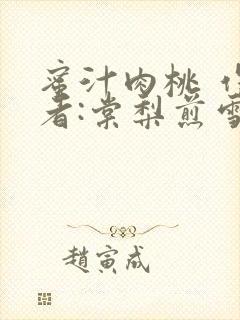 蜜汁肉桃 
者:棠梨煎雪
趙寅成